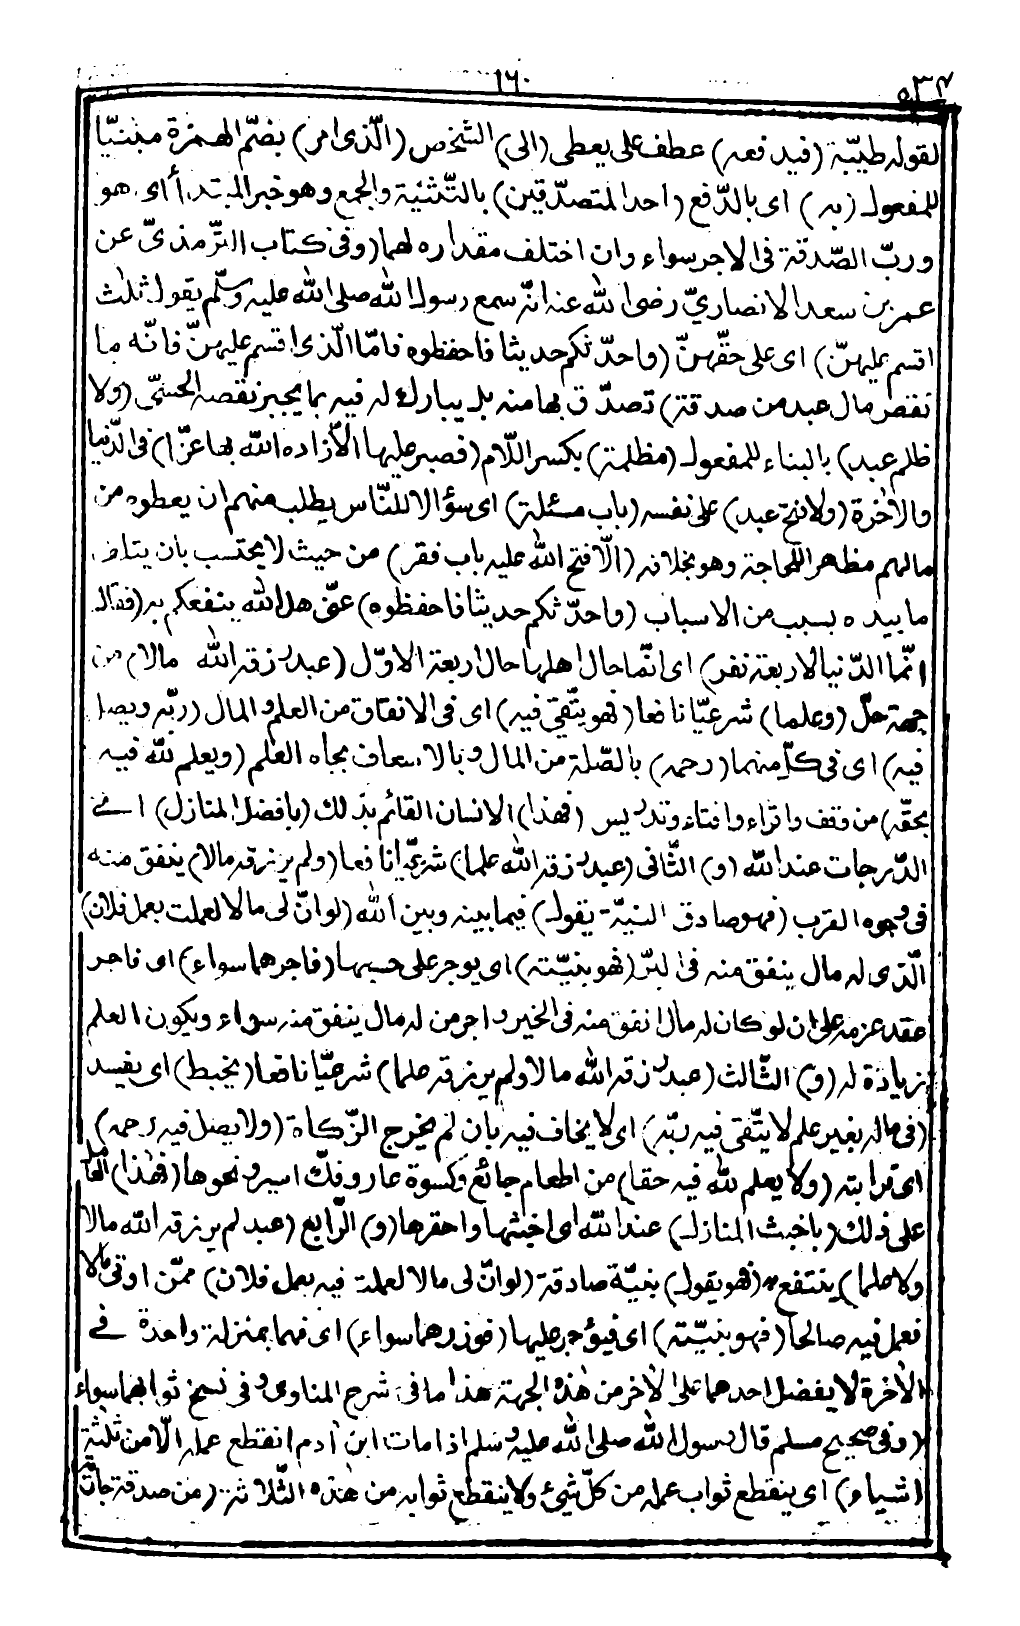 ١٦٠
٥٣٤
لقوله طيّبة (فيدفعه) عطف على يعطى (الى) الشّخص (الّذى امر) بضمّ الهمزة مبنيّا
للمفعول (به) اى بالدّفع (احد المتصدّقين) بالتّثنية والجمع وهو خبر المبتدأ اى هو
وربّ الصّدقة فى الاجر سواء وان اختلف مقداره لهما (وفى كتاب التّرمذىّ عن
عمر بن سعد الانصاريّ رضى الله عنه انّه سمع رسول الله صلى الله عليه وسلّم يقول ثلث
اقسم عليهنّ) اى على حقّهنّ (واحدّثكم حديثا فاحفظوه فامّا الّذى اقسم عليهنّ فانّه ما
نقص مال عبد من صدقة) تصدّق بها منه بل يبارك له فيه بما يجبر نقصه الحسّىّ (ولا
ظلم عبد) بالبناء للمفعول (مظلمة) بكسر اللّام (فصبر عليها الّا زاده الله بها عزّا) فى الدّنيا
والآخرة (ولا فتح عبد) على نفسه (باب مسئلة) اى سؤالا للنّاس يطلب منهم ان يعطوه من
مالهم مظهرا للحاجة وهو بخلافه (الّا فتح الله عليه باب فقر) من حيث لا يحتسب بان يتلف
ما بيده بسبب من الاسباب (واحدّثكم حديثا فاحفظوه) عنّى هل الله ينفعكم به (فقال
انّما الدّنيا لاربعة نفر) اى انّما حال اهلها حال اربعة الاوّل (عبد رزقه الله مالا) من
جهة حلّ (وعلما) شرعيّا نافعا (فهو يتّقى فيه) اى فى الانفاق من العلم والمال (ربّه ويصل
فيه) اى فى كلّ منهما (رحمه) بالصّلة من المال وبالاسعاف بجاه العلم (ويعلم لله فيه
بحقّه) من وقف واقراء وافتاء وتدريس (فهذا) الانسان القائم بذلك (بافضل المنازل) اى
الدّرجات عند الله (و) الثّانى (عبد رزقه الله علما) شرعيّا نافعا (ولم يرزقه مالا) ينفق منه
فى وجوه القرب (فهو صادق النيّة يقول) فيما بينه وبين الله (لو انّ لى مالا لعملت بعمل فلان)
الّذى له مال ينفق منه فى البرّ (فهو بنيّته) اى يوجر على حسبها (فاجرهما سواء) اى فاجر
عقد عزمه على ان لو كان له مال انفق منه فى الخير واجر من له مال ينفق منه سواء ويكون العلم
زيادة له (و) الثّالث (عبد رزقه الله مالا ولم يرزقه علما) شرعيّا نافعا (يخبط) اى يفسد
(فى ماله بغير علم لا يتّقى فيه ربّه) اى لا يخاف فيه بان لم يخرج الزّكاة (ولا يصل فيه رحمه)
اى قرابته (ولا يعلم لله فيه حقا) من اطعام جائع وكسوة عار وفكّ اسير ونحوها (فهذا) العامل
على ذلك (باخبث المنازل) عند الله اى اخبثها واحقرها (و) الرّابع (عبد لم يرزقه الله مالا
ولا علما) ينتفع به (فهو يقول) بنيّة صادقة (لو انّ لى مالا لعملت فيه بعمل فلان) ممّن اوتى مالا
فعمل فيه صالحا (فهو بنيّته) اى فيؤجر عليها (فوزرهما سواء) اى فهما بمنزلة واحدة فى
الآخرة لا يفضل احدهما على الآخر من هذه الجهة هذا ما فى شرح المناوى وفى نسخ ثوابهما سواء
(وفى صحيح مسلم قال رسول الله صلى الله عليه وسلم اذا مات ابن آدم انقطع عمله الّا من ثلثة
اشياء) اى ينقطع ثواب عمله من كلّ شيئ ولا ينقطع ثوابه من هذه الثّلاثة (من صدقة جارية